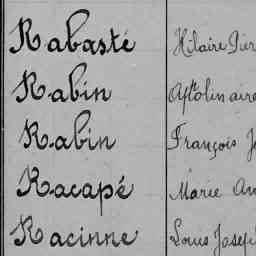 Rabasté Hilaire Pier
Rabin Apolinaire
Rabin François J
Racapé Marie An
Racinne Louis Josep